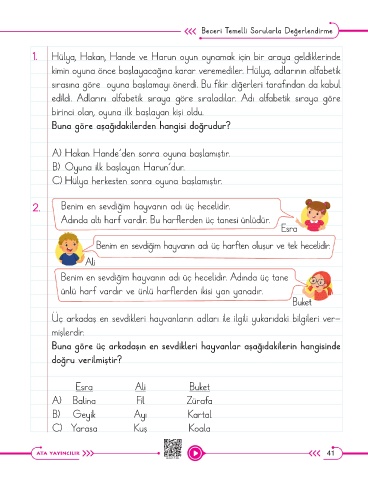 Beceri Temelli Sorularla Değerlendirme
1. Hülya, Hakan, Hande ve Harun oyun oynamak için bir araya geldiklerinde
kimin oyuna önce başlayacağına karar veremediler. Hülya, adlarının alfabetik
sırasına göre oyuna başlamayı önerdi. Bu fikir diğerleri tarafından da kabul
edildi. Adlarını alfabetik sıraya göre sıraladılar. Adı alfabetik sıraya göre
birinci olan, oyuna ilk başlayan kişi oldu.
Buna göre aşağıdakilerden hangisi doğrudur?
A) Hakan Hande'den sonra oyuna başlamıştır.
B) Oyuna ilk başlayan Harun'dur.
C) Hülya herkesten sonra oyuna başlamıştır.
2. Benim en sevdiğim hayvanın adı üç hecelidir.
Adında altı harf vardır. Bu harflerden üç tanesi ünlüdür.
Esra
Benim en sevdiğim hayvanın adı üç harften oluşur ve tek hecelidir.
Ali
Benim en sevdiğim hayvanın adı üç hecelidir. Adında üç tane
ünlü harf vardır ve ünlü harflerden ikisi yan yanadır.
Buket
Üç arkadaş en sevdikleri hayvanların adları ile ilgili yukarıdaki bilgileri ver-
mişlerdir.
Buna göre üç arkadaşın en sevdikleri hayvanlar aşağıdakilerin hangisinde
doğru verilmiştir?
Esra Ali Buket
A) Balina Fil Zürafa
B) Geyik Ayı Kartal
C) Yarasa Kuş Koala
ATA YAYINCILIK
41